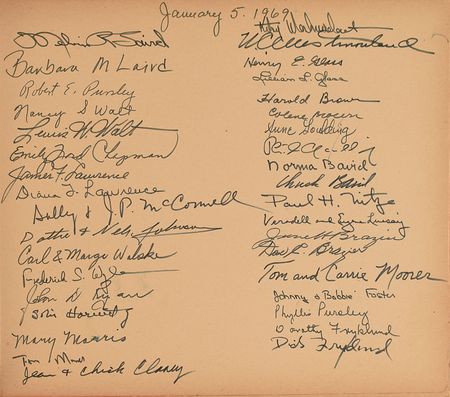 January 5, 1969
Melvin R Laird
Barbara M Laird
Robert E. Pursley
Nancy S Walt
Lewis W Walt
Emily Ford Chapman
James F. Lawrence
Diana F. Lawrence
Sally & J.P. McConnell
Dottie & Nels Johnson
Carl & Margo Walske
Frederick S. Wyle
John D Ryan
Solis Horwitz
Mary Morris
Tom Morris
Jean & Chick Clarey
W C Westmoreland
Henry E. Glass
Lillian L. Glass
Harold Brown
Colene
Anne Goulding
Norma Baird
Chuck Baird
Paul H. Nitze
Verodell and Eugene
Jane H Brazier
Don L. Brazier
Tom and Carrie Moorer
Johnny & Bobbie Foster
Phyllis Pursley
Dorothy Fryklund
Dick Fryklund